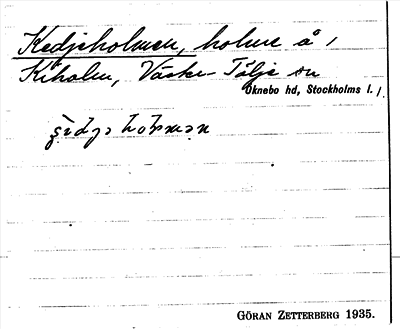 Kedjeholmen, holme å 1
Kiholm, Väster-Tälje sn
Öknebo hd, Stockholms l.
GÖRAN ZETTERBERG 1935.